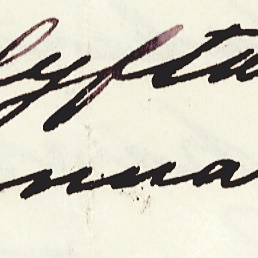 lyftu
nna